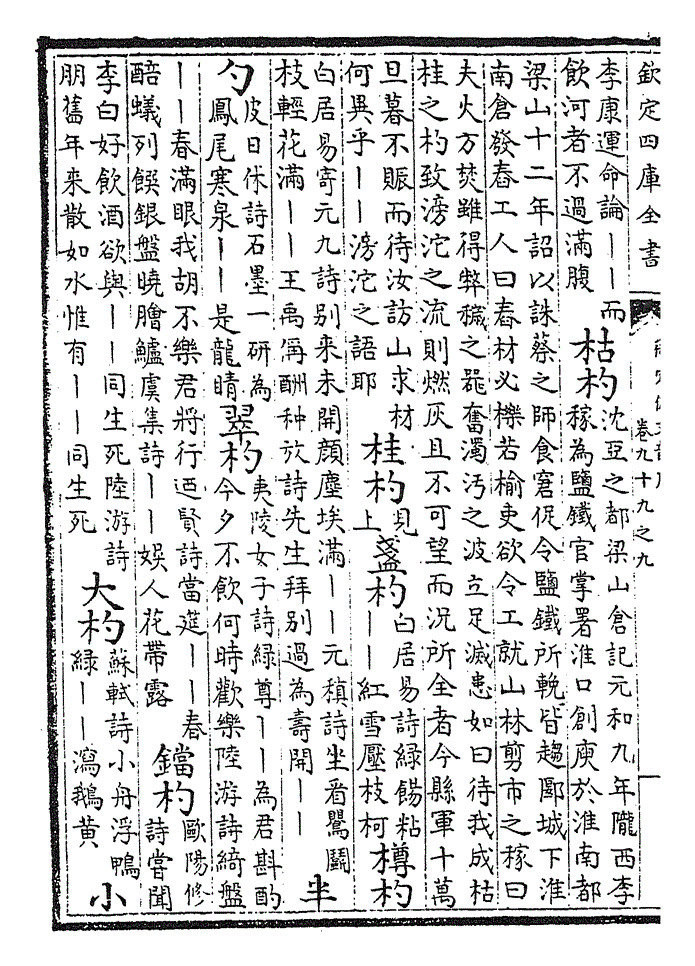 欽定四庫全書
卷九十九之九
李康運命論——而
飲河者不過滿腹
枯杓
沈亞之都梁山倉記元和九年隴西李
稼為鹽鐵官掌署淮口創庾於淮南都
梁山十二年詔以誅蔡之師食窘促令鹽鐵所輓皆趨郾城下淮
南倉發舂工人曰舂材必櫟若榆吏欲令工就山林剪市之稼曰
夫火方焚雖得弊穢之噐奮濁汚之波立足滅患如曰待我成枯
桂之杓致滂沱之流則燃灰且不可望而況所全者今縣軍十萬
旦暮不賑而待汝訪山求材
何異乎——滂沱之語耶
桂杓
見
上
盞杓
白居易詩緑餳粘
——紅雪壓枝柯
樽杓
白居易寄元九詩别来未開顔塵埃滿——元稹詩坐看驚鬬
枝輕花滿——王禹偁酬种放詩先生拜别過為壽開——
半
勺
皮日休詩石墨一研為
鳳尾寒泉——是龍睛
翠杓
夷陵女子詩緑尊——為君斟酌
今夕不飲何時歡樂陸游詩綺盤
——春滿眼我胡不樂君將行迺賢詩當筵——春
醅蟻列饌銀盤曉膾鱸虞集詩——娱人花帶露
鐺杓
歐陽修
詩嘗聞
李白好飲酒欲與——同生死陸游詩
朋舊年来散如水惟有——同生死
大杓
蘇軾詩小舟浮鴨
緑——瀉鵝黄
小